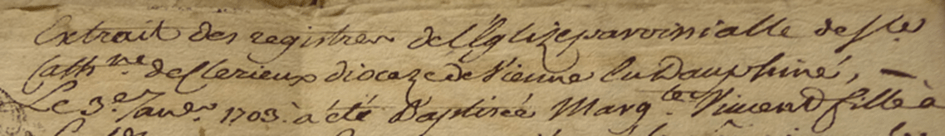 Extrait des registres de l'Eglize parroissialle de Ste
Cathne de Clerieux dioceze de Vienne en Dauphiné, —
Le 3e janer 1703. à été baptisée Margte Vincend fille à